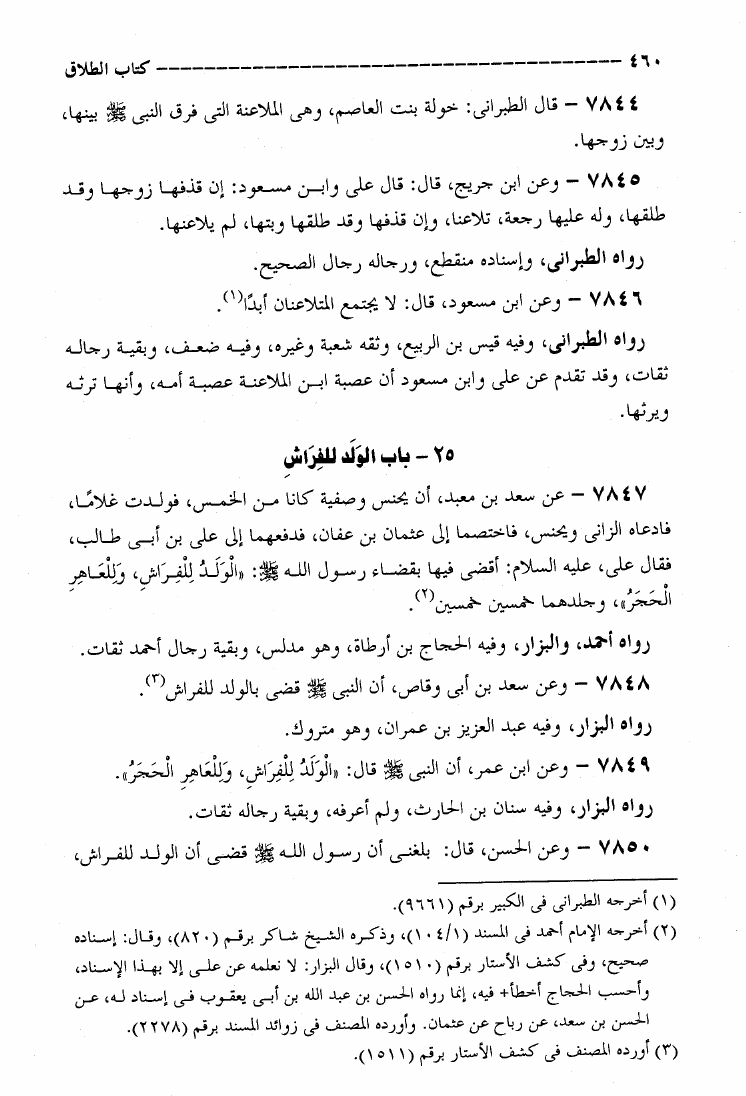 ٤٦٠ ــــــــــــــــــــــــــــــــــــــــــــــــــ كتاب الطلاق
٧٨٤٤ – قال الطبرانى: خولة بنت العاصم، وهى الملاعنة التى فرق النبى ﷺ بينها،
وبين زوجها.
٧٨٤٥ – وعن ابن جريج، قال: قال على وابن مسعود: إن قذفها زوجها وقد
طلقها، وله عليها رجعة، تلاعنا، وإن قذفها وقد طلقها وبتها، لم يلاعنها.
رواه الطبرانى، وإسناده منقطع، ورجاله رجال الصحيح.
٧٨٤٦ – وعن ابن مسعود، قال: لا يجتمع المتلاعنان أبدًا(١).
رواه الطبرانى، وفيه قيس بن الربيع، وثقه شعبة وغيره، وفيه ضعف، وبقية رجاله
ثقات، وقد تقدم عن على وابن مسعود أن عصبة ابن الملاعنة عصبة أمه، وأنها ترثه
ويرثها.
٢٥ – باب الوَلَد للفِرَاشِ
٧٨٤٧ – عن سعد بن معبد، أن يحنس وصفية كانا من الخمس، فولدت غلامًا،
فادعاه الزانى ويحنس، فاختصما إلى عثمان بن عفان، فدفعهما إلى على بن أبى طالب،
فقال على، عليه السلام: أقضى فيها بقضاء رسول الله ﷺ: «الْوَلَدُ لِلْفِرَاشِ، وَلِلْعَاهِرِ
الْحَجَرُ»، وجلدهما خمسين خمسين(٢).
رواه أحمد، والبزار، وفيه الحجاج بن أرطاة، وهو مدلس، وبقية رجال أحمد ثقات.
٧٨٤٨ – وعن سعد بن أبى وقاص، أن النبى ﷺ قضى بالولد للفراش(٣).
رواه البزار، وفيه عبد العزيز بن عمران، وهو متروك.
٧٨٤٩ – وعن ابن عمر، أن النبى ﷺ قال: «الْوَلَدُ لِلْفِرَاشِ، وَلِلْعَاهِرِ الْحَجَرُ».
رواه البزار، وفيه سنان بن الحارث، ولم أعرفه، وبقية رجاله ثقات.
٧٨٥٠ – وعن الحسن، قال: بلغنى أن رسول الله ﷺ قضى أن الولد للفراش،
(١) أخرجه الطبرانى فى الكبير برقم (٩٦٦١).
(٢) أخرجه الإمام أحمد فى المسند (١٠٤/١)، وذكره الشيخ شاكر برقم (٨٢٠)، وقال: إسناده
صحيح، وفى كشف الأستار برقم (١٥١٠)، وقال البزار: لا نعلمه عن على إلا بهذا الإسناد،
وأحسب الحجاج أخطأ+ فيه، إنما رواه الحسن بن عبد الله بن أبى يعقوب فى إسناد له، عن
الحسن بن سعد، عن رباح عن عثمان. وأورده المصنف فى زوائد المسند برقم (٢٢٧٨).
(٣) أورده المصنف فى كشف الأستار برقم (١٥١١).